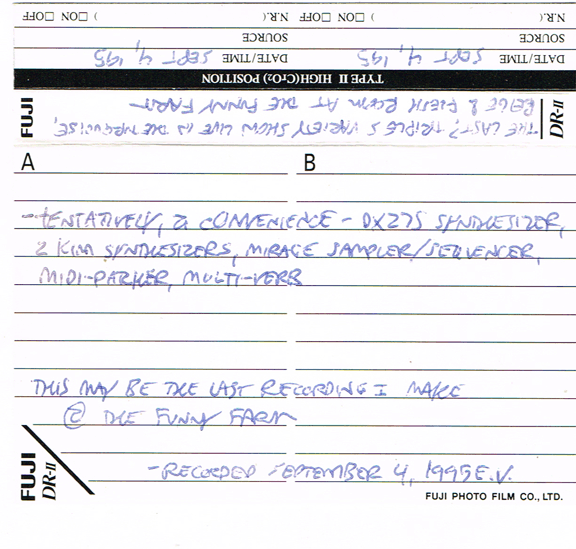 N.R.( ) □ON □OFF N.R.( ) □ON □OFF
SOURCE SOURCE
DATE/TIME SEPT 4, '95 DATE/TIME SEPT 4, '95
TYPE II HIGH(CrO₂) POSITION
FUJI DR-II
THE LAST?, TRIPLE S VARIETY SHOW LIVE IN THE TURQUOISE,
BEIGE & FLESH ROOM AT THE FUNNY FARM
A B
-tENTATIVELY, a CONVENIENCE - DX27S SYNTHESIZER,
2 KIM SYNTHESIZERS, MIRAGE SAMPLER/SEQUENCER,
MIDI-PARKER, MULTI-VERB
THIS MAY BE THE LAST RECORDING I MAKE
@ THE FUNNY FARM
-RECORDED SEPTEMBER 4, 1995 E.V.
FUJI
DR-II
FUJI PHOTO FILM CO., LTD.